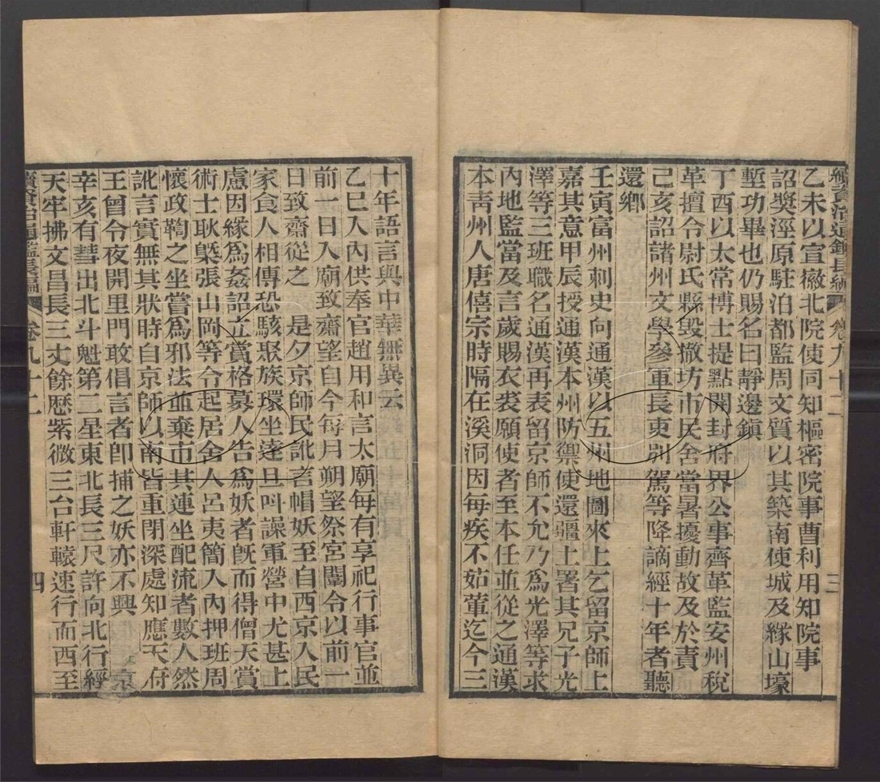 續資治通鑑長編 卷九十二 三
乙未以宣徽北院使同知樞密院事曹利用知院事
詔獎涇原駐泊都監周文質以其築南使城及緣山壕
塹功畢也仍賜名曰靜邊鎮
丁酉以太常博士提點開封府界公事齊革監安州稅
革擅令尉氏縣毀撤坊市民舍當暑擾動故及於責
己亥詔諸州文學參軍長史別駕等降謫經十年者聽
還鄉
壬寅富州刺史向通漢以五州地圖來上乞留京師上
嘉其意甲辰授通漢本州防禦使還疆土署其兄子光
澤等三班職名通漢再表留京師不允乃為光澤等求
內地監當及言歲賜衣裘願使者至本任並從之通漢
本青州人唐僖宗時隔在溪洞因每疾不茹葷迄今三
十年語言與中華無異云
乙巳入內供奉官趙用和言太廟每有享祀行事官並
前一日入廟致齋望自今每月朔望祭宮闈令以前一
日致齋從之 是夕京師民訛言帽妖至自西京入民
家食人相傳恐駭聚族環坐達旦叫譟軍營中尤甚上
慮因緣為姦詔立賞格募人告為妖者既而得僧天賞
術士耿槩張山岡等令起居舍人呂夷簡入內押班周
懷政鞫之坐嘗為邪法並棄市其連坐配流者數人然
訛言實無其狀時自京師以南皆重閉深處知應天府
王曾令夜開里門敢倡言者即捕之妖亦不興
辛亥有彗出北斗魁第二星東北長三尺許向北行經
天牢拂文昌長三丈餘歷紫微三台軒轅速行而西至
續資治通鑑長編 卷九十二 四